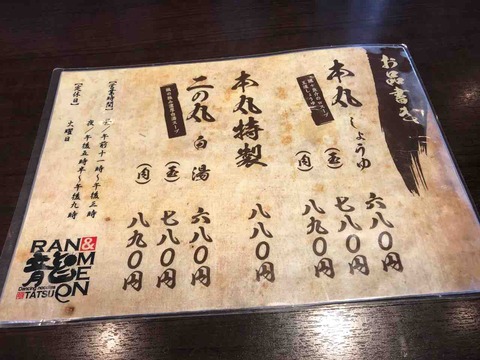 お品書き
本丸 しょうゆ 六八〇円
(玉) 七八〇円
(肉) 八九〇円
本丸特製 八八〇円
二の丸 白湯 六八〇円
(玉) 七八〇円
(肉) 八九〇円
【営業時間】 昼／午前十一時～午後三時
夜／午後五時半～午後九時
【定休日】 土曜日
RAMEN
&
TATSU